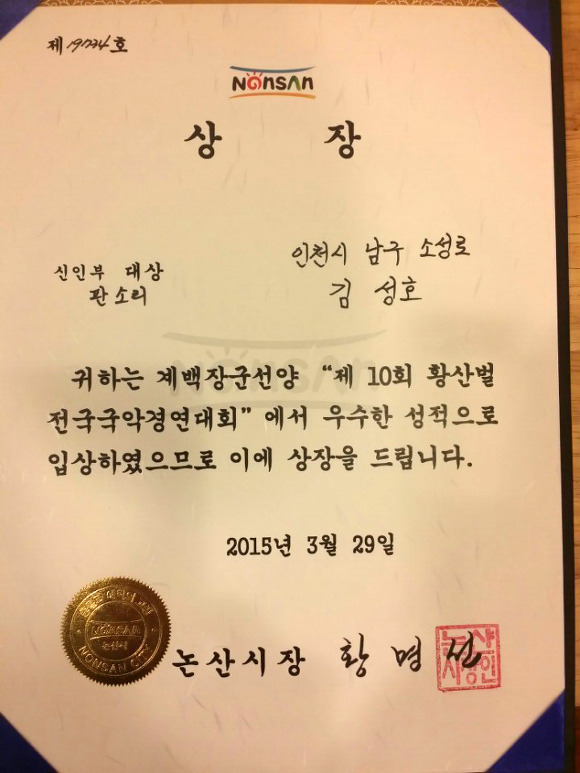 제 19734 호
NonSan
상 장
인천시 남구 소성로
신인부 대상
판소리
김 성호
귀하는 계백장군선양 “제 10회 황산벌
전국국악경연대회” 에서 우수한 성적으로
입상하였으므로 이에 상장을 드립니다.
2015년 3월 29일
NONSAN
논산시
NONSAN CITY
논산시장 황 명 선
논산
시장인